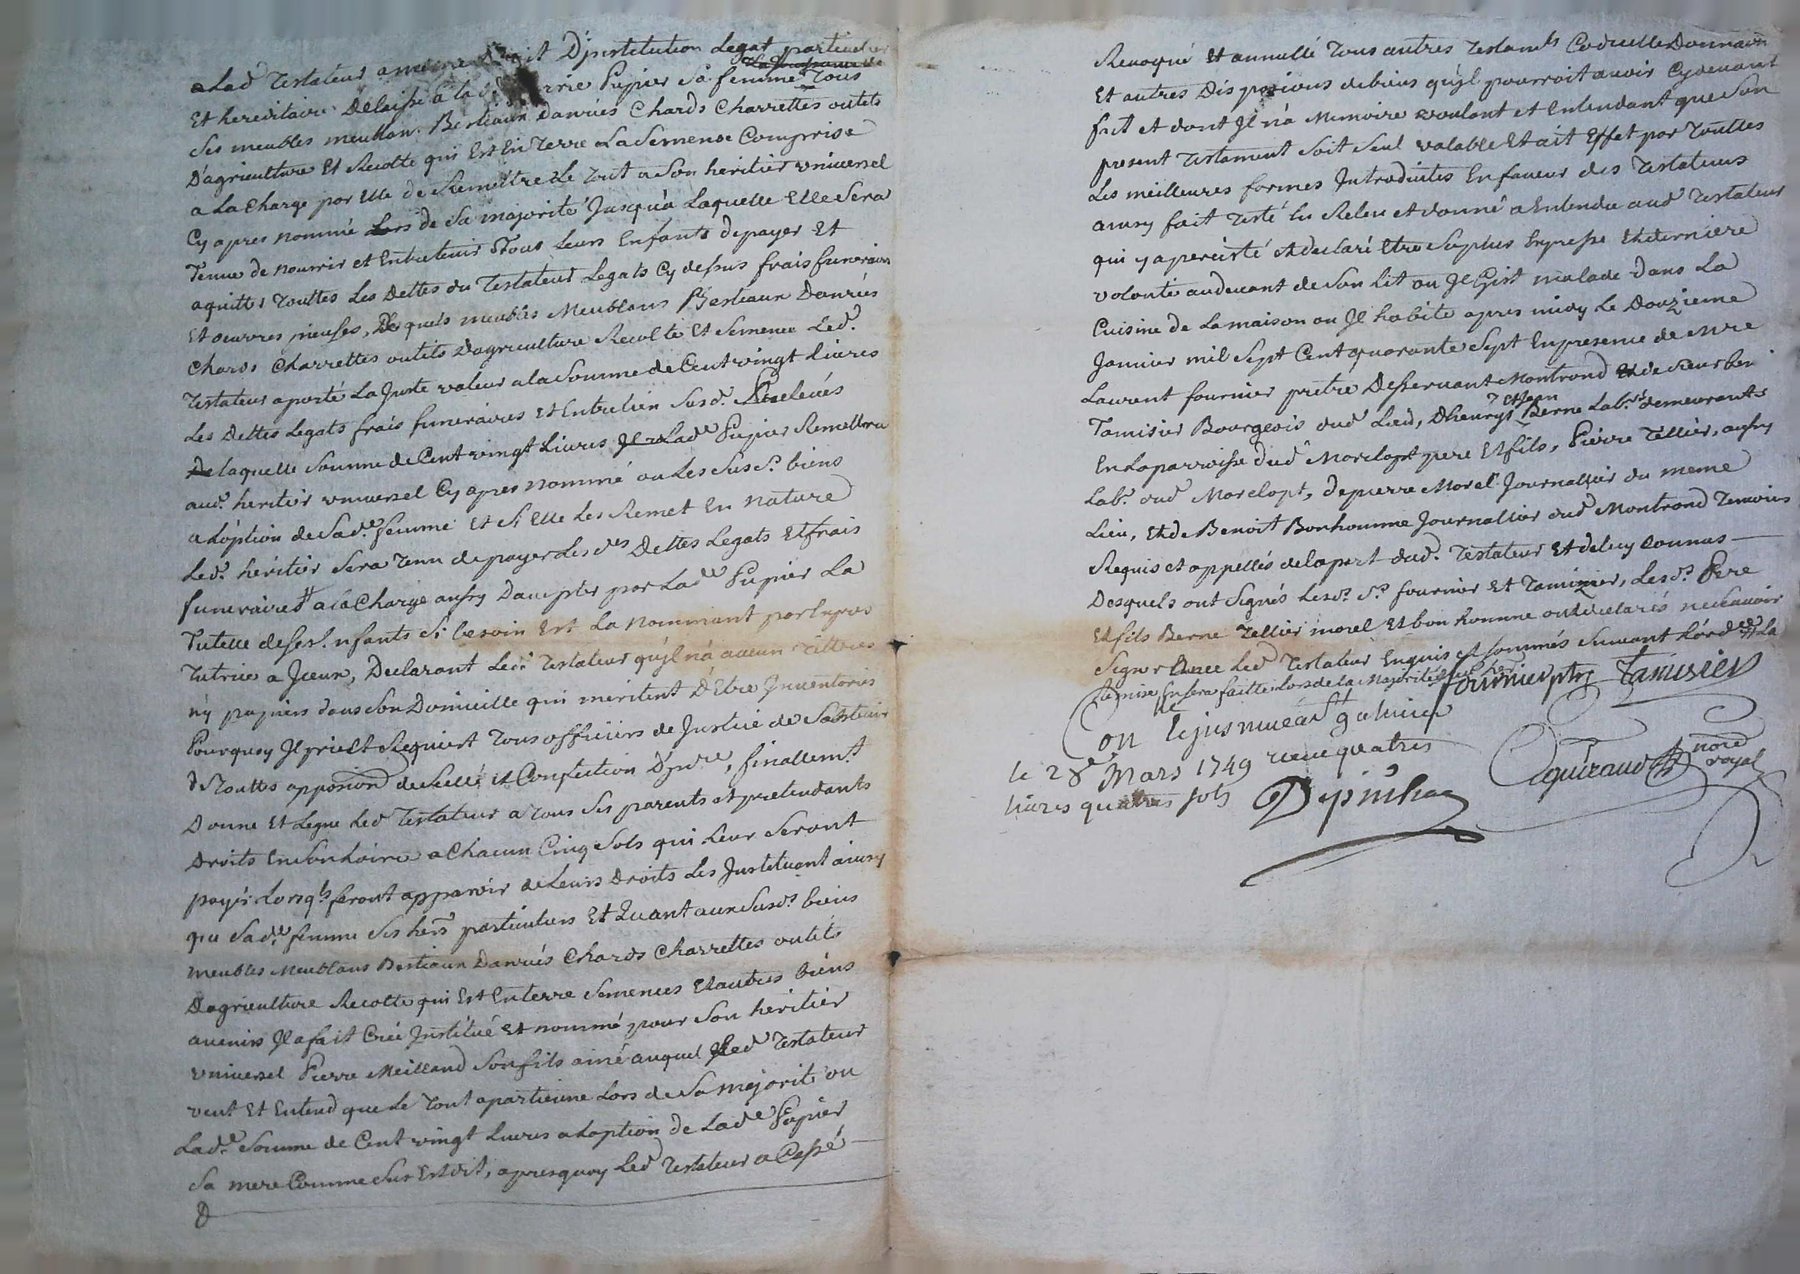 Led Testateur a meme Droit D'institution Legat particulier
Et hereditaire Delaisse a lad Marie Pupier Sa femme Tous
Ses meubles meublans Bestiaux Danrées Chards Charrettes outils
D'agriculture Et Recolte qui Est En Terre La Semense Comprise
a La Charge par Elle de Remettre Le Tout a Son heritier universel
Cy apres nommé Lors de Sa majorité Jusqu'a Laquelle Elle Sera
Tenue de nourrir et Entretenir Tous Leurs Enfants de payer Et
aquitter Touttes Les Dettes du Testateur Legats Cy dessus frais funeraires
Et oeuvres pieuses, Desquels meubles Meublans Bestiaux Danrées
Chards Charrettes outils Dagriculture Recolte Et Semence Led.
Testateur a porté La Juste valeur a la Somme de Cent vingt Livres
Les Dettes Legats frais funeraires et Entretien Susd. Prelevés
De laquelle Somme de Cent vingt Livres Lade Pupier Remettra
aud. heritier universel Cy apres nommé ou Les Susd. biens
a Loption de Sade femme Et Si Elle Les Remet En nature
Led. heritier Sera Tenu de payer Les ds Dettes Legats Et frais
funeraires a la Charge aussy Daccepter par Lade Pupier La
Tutelle de ses Enfants Si besoin Est La nommant par Exprés
Tutrice a Iceux, Declarant Led. Testateur qu'il n'a aucun Tittres
n'y papiers dans Son Domicille qui meritent D'Etre Inventoriés
Pourquoy Il prie Et Requiert Tous officiers de Justice de Sabstenir
de Touttes apposition de Scellé et Confection D'Jnvre, finallemt
Donne Et Legue Led Testateur a Tous Ses parents et pretendants
Droits En Son hoirie a Chacun Cinq Sols qui Leur Seront
payés Lorsqls feront apparoir de Leurs Droits Les Jnstituant ainsy
que Sade femme Ses hers particuliers Et Quant aux Susds biens
meubles Meublans Bestiaux Danrés Chards Charrettes outils
Dagriculture Recolte qui Est En terre Semences Et autres biens
avenirs Il a fait Créé Jnstitué Et nommé pour Son heritier
universel Pierre Meilland Son fils ainé auquel Led Testateur
veut Et Entend que Le Tout apartienne Lors de Sa majorité ou
Lade Somme de Cent vingt Livres a Loption de Lade Pupier
Sa mere Comme Sus Est dit, apres quoy Led Testateur a Cassé
Revoqué Et annullé Tous autres Testamts Codicilles Donnaons
Et autres Dispositions de biens qu'il pourroit avoir Cy devant
fait et dont Il n'a Memoire voulant et Entendant que Son
present Testament Soit Seul valable Et ait Effet par Touttes
Les meilleures formes Introduittes En faveur des Testateurs
ainsy fait Testé Lu Releu et donné a Entendre aud Testateur
qui y a percisté et declaré Etre Sa plus Expresse Et derniere
volonté au devant de Son Lit ou Il Gist malade dans La
Cuisine de La maison ou Il habite apres midy Le Douzieme
Janvier mil Sept Cent quarante Sept En presence de Mre
Laurent fournier pretre Desservant Montrond Et de Sieur
Tamisier Bourgeois dud Lieu, Dhenrys et Jean Berne Labrs demeurants
En La parroisse dud Morclopt pere Et fils, Pierre Tellier, aussy
Labr. dud Morclopt, de pierre Morel Journallier du meme
Lieu, Et de Benoit Bonhomme Journallier dud Montrond Temoins
Requis et appellés de la part dud. Testateur Et de luy Connus
Desquels ont Signés Lesds Srs fournier Et Tamizier, Lesds Pere
Et fils Berne Tellier morel Et bonhomme ont declarés ne Scavoir
Signer Led Testateur Enquis et Sommés Suivant L'ordce
La
La mise En Sera faitte Lors de La Majorité
fournier ptre Tamisier
Con le
le 28e Mars 1749 receu quatres
livres quatres sols Depinhac
Aguiraud nore
royal